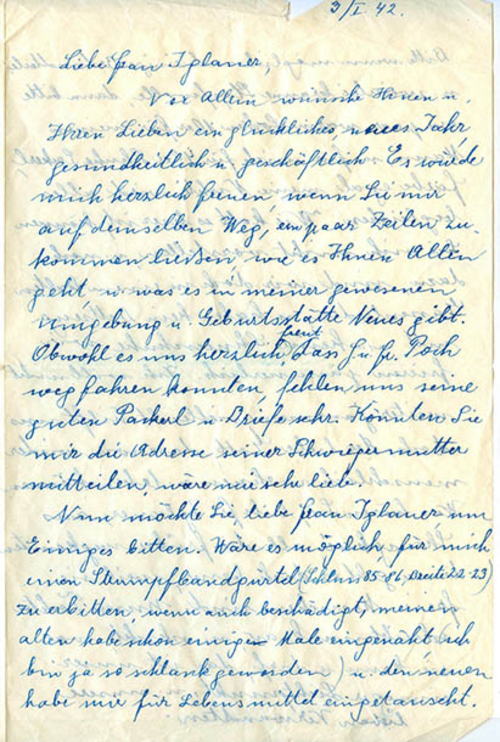 3/I. 42.
Liebe Frau Iglauer,
Vor Allem wünsche Ihnen u.
Ihren Lieben ein glückliches, neues Jahr
gesundheitlich u geschäftlich Es würde
mich herzlich freuen, wenn Sie mir
auf demselben Weg, ein paar Zeilen, zu-
kommen ließen, wie es Ihnen Allen
geht, u was es in meiner gewesenen
Umgebung u. Geburtsstätte Neues gibt.
Obwohl es uns herzlich freut dass H u. Fr. Poch
wegfahren konnten, fehlen uns seine
guten Packerl u Briefe sehr. Könnten Sie
mir die Adresse seiner Schwiegermutter
mitteilen, wäre mir sehr lieb.
Nun möchte Sie liebe Frau Iglauer, um
Einiges bitten. Wäre es möglich, für mich
einen Strumpfbandgürtel (85-86, Breite 22-23)
zu erbitten, wenn auch beschädigt, meinen
alten habe schon einige Male eingenäht (ich
bin ja so schlank geworden) u. den neuen
habe mir für Lebensmittel eingetauscht.